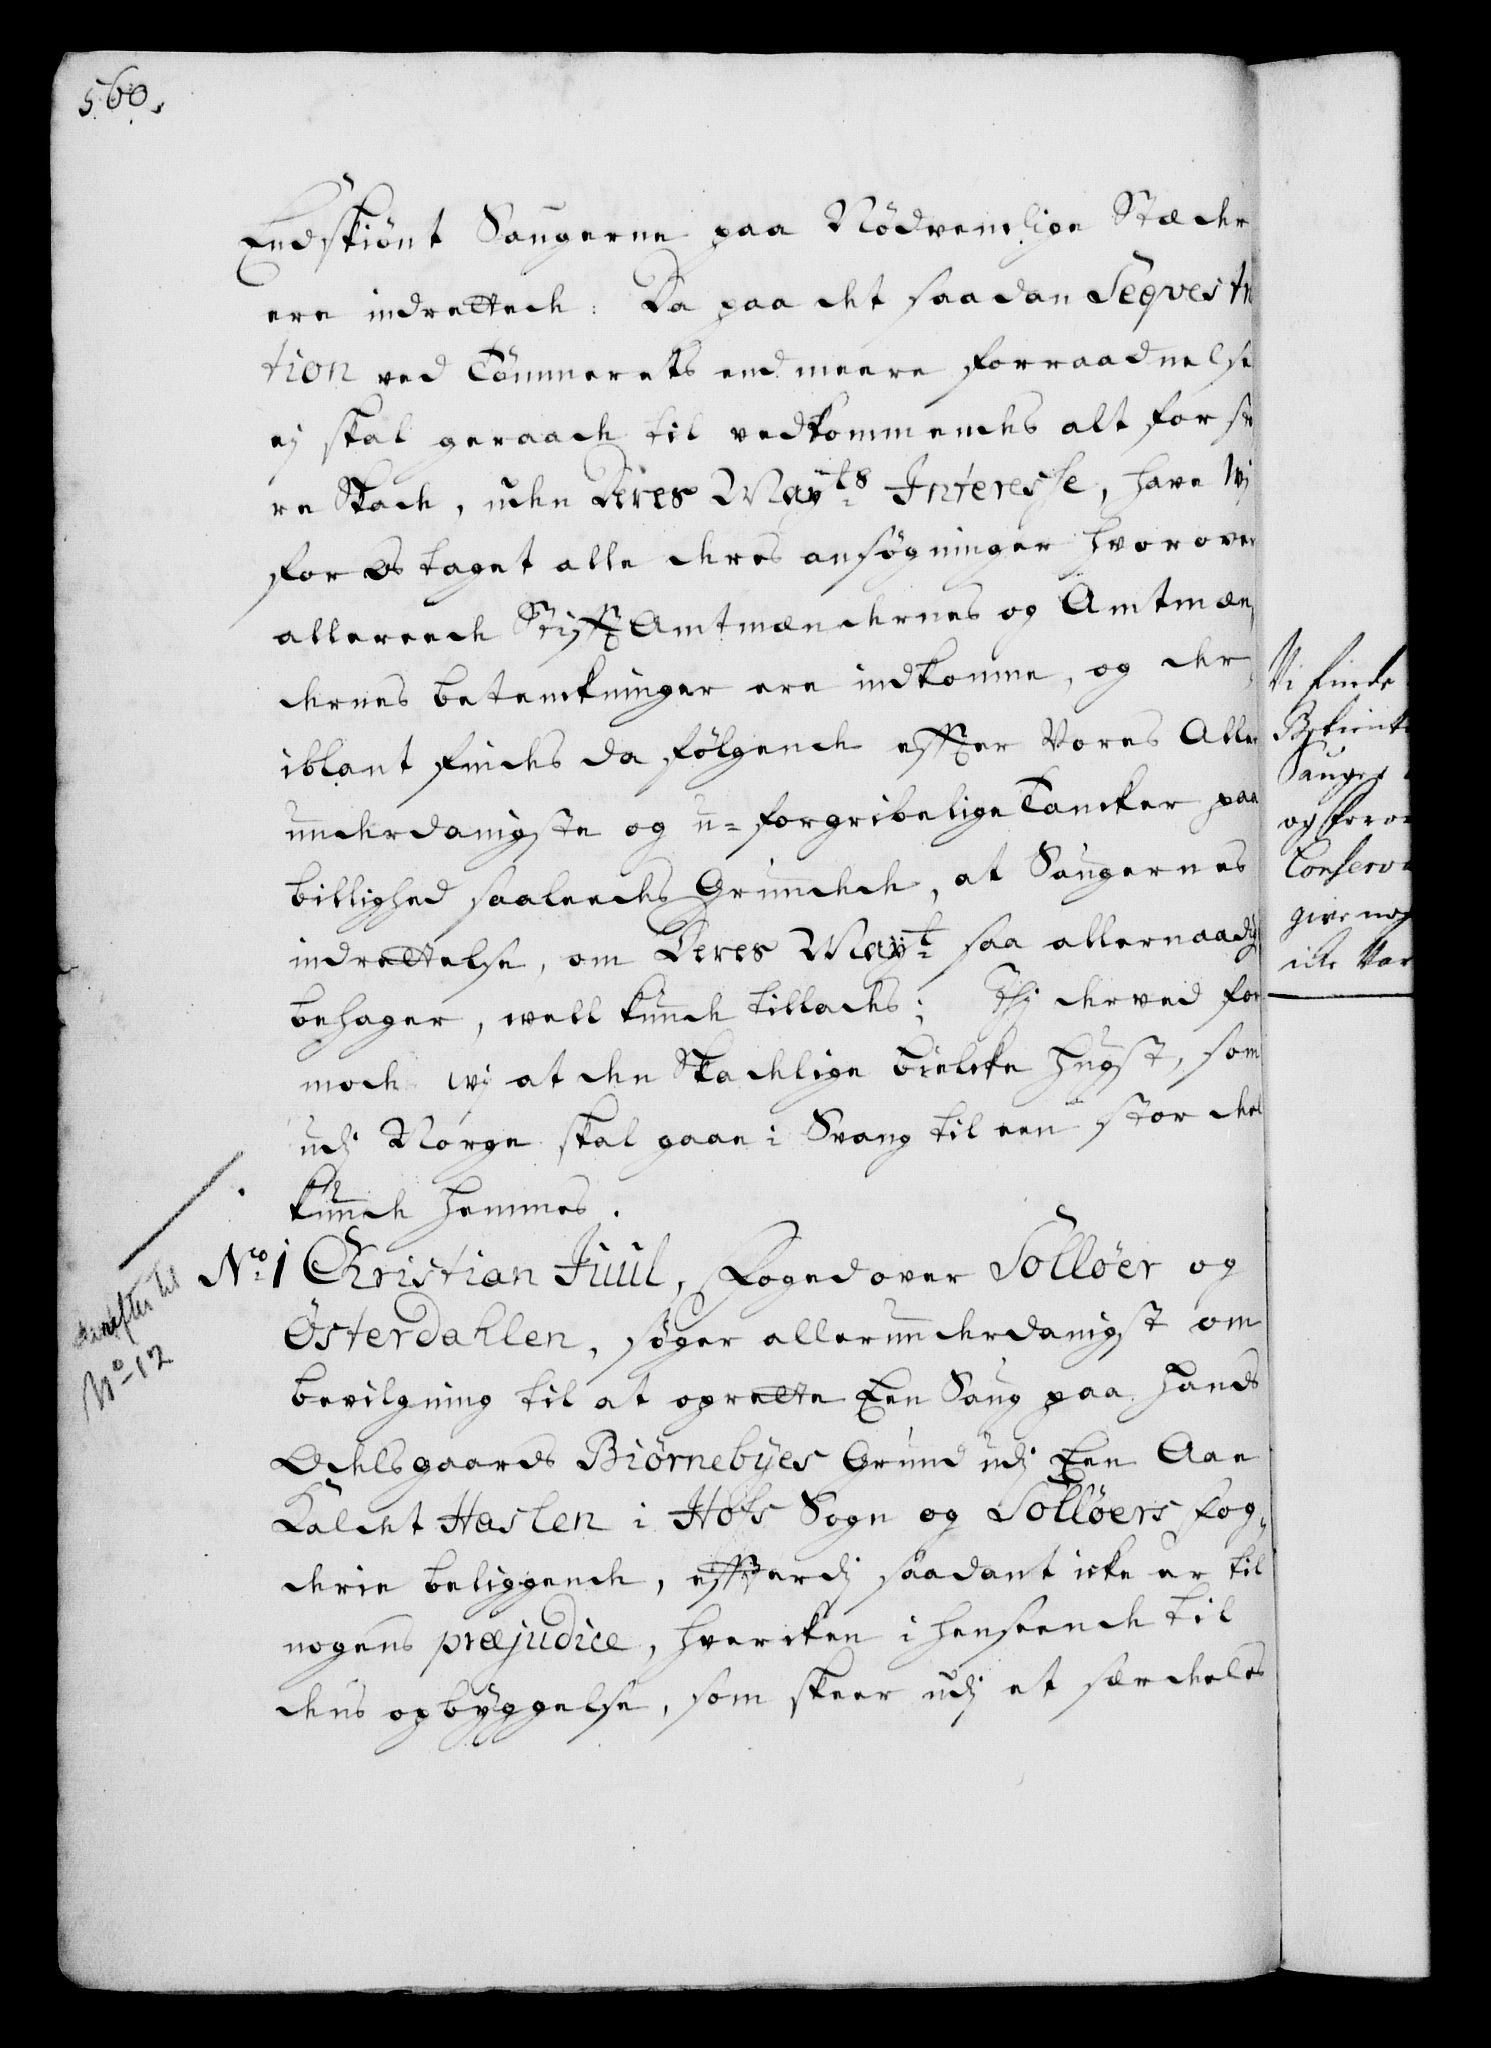 560.
Endskiønt Saugerne paa Nödvendige Stæder
ere indrettede: Da paa det saadan Seqvestra
tion ved Tömmerets end meere forraadnelse
ej skal geraade til vedkommendes alt for sto
re Skade, uden Deres Mayts Interesse, have Wj
for Os taget alle deres ansøgninger hvorover
allereede Stifft Amtmændernes og Amtmæn,
dernes betenkninger ere indkomne, og der,
iblant findes da følgende effter Vores Aller
underdanigste og u-forgribelige Tancker paa
billighed saaleedes Grundede, at Saugernes
indrettelse, om Deres Mayt saa allernaadigst
behager, well kunde tillades; Thj derved for
mode wj at den Skadelige bielcke Hugst, som
udj Norge skal gaae i Svang til een stor deel
kunde hemmes.
No 1 Christian Juul, Foged over Solløer og
Østerdahlen, søger allerunderdanigst om
bevilgning til at oprette Een Saug paa hands
Odelsgaards Biørnebyes Grund udj Een Aae
Kaldet Haslen i Hofs Sogn og Solløers Fog,
derie beliggende, effterdj saadant icke er til
nogens præjudice, hvercken i henseende til
dens opbyggelse, som skeer udj et særdeles
No 12
Vi finde
Betienter
Sauger
og foror
Conserva
give nog
icke Var